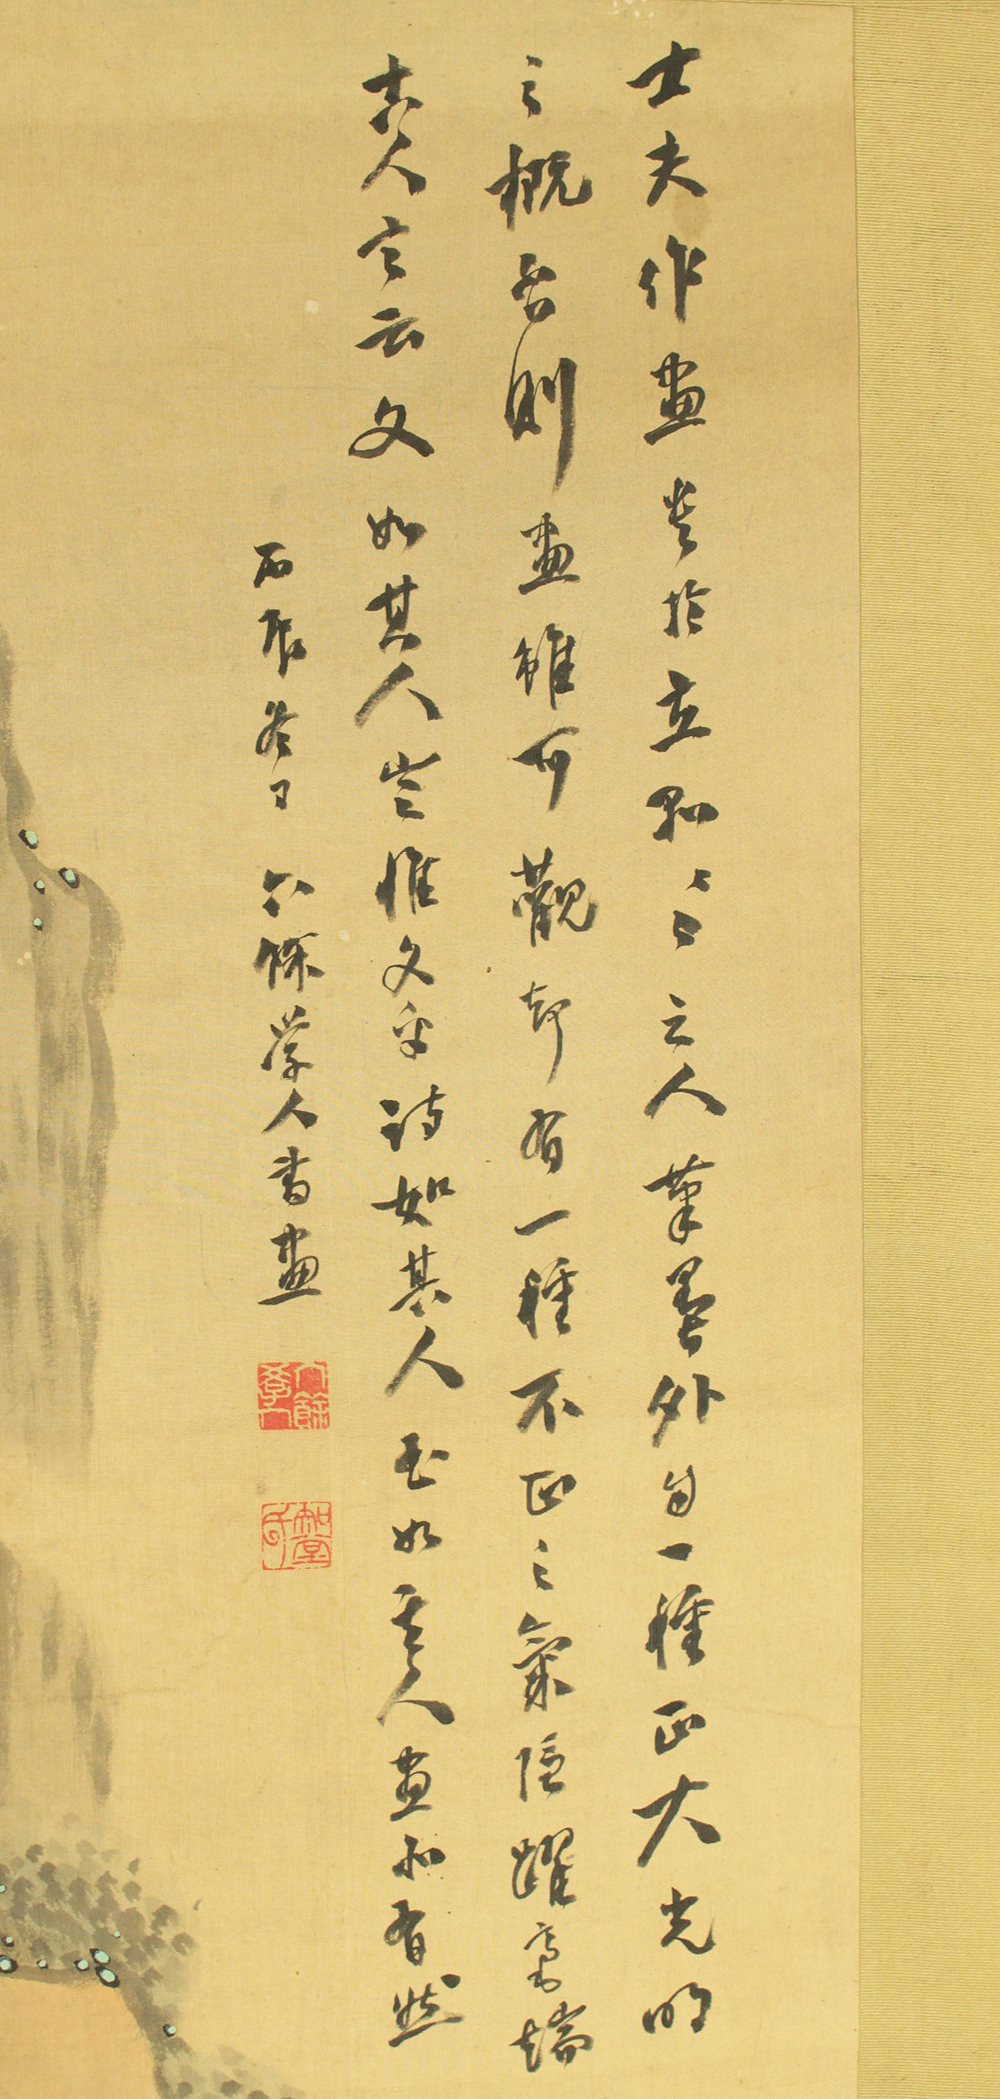 士夫作畫貴於立品〻〻之人筆墨外自一種正大光明
之概否則畫雖可觀却有一種不正之氣隱躍毫端
古人言云文如其人豈惟文乎詩如其人書如其人畫亦有然
丙辰冬日 六餘學人書畫
六餘學人